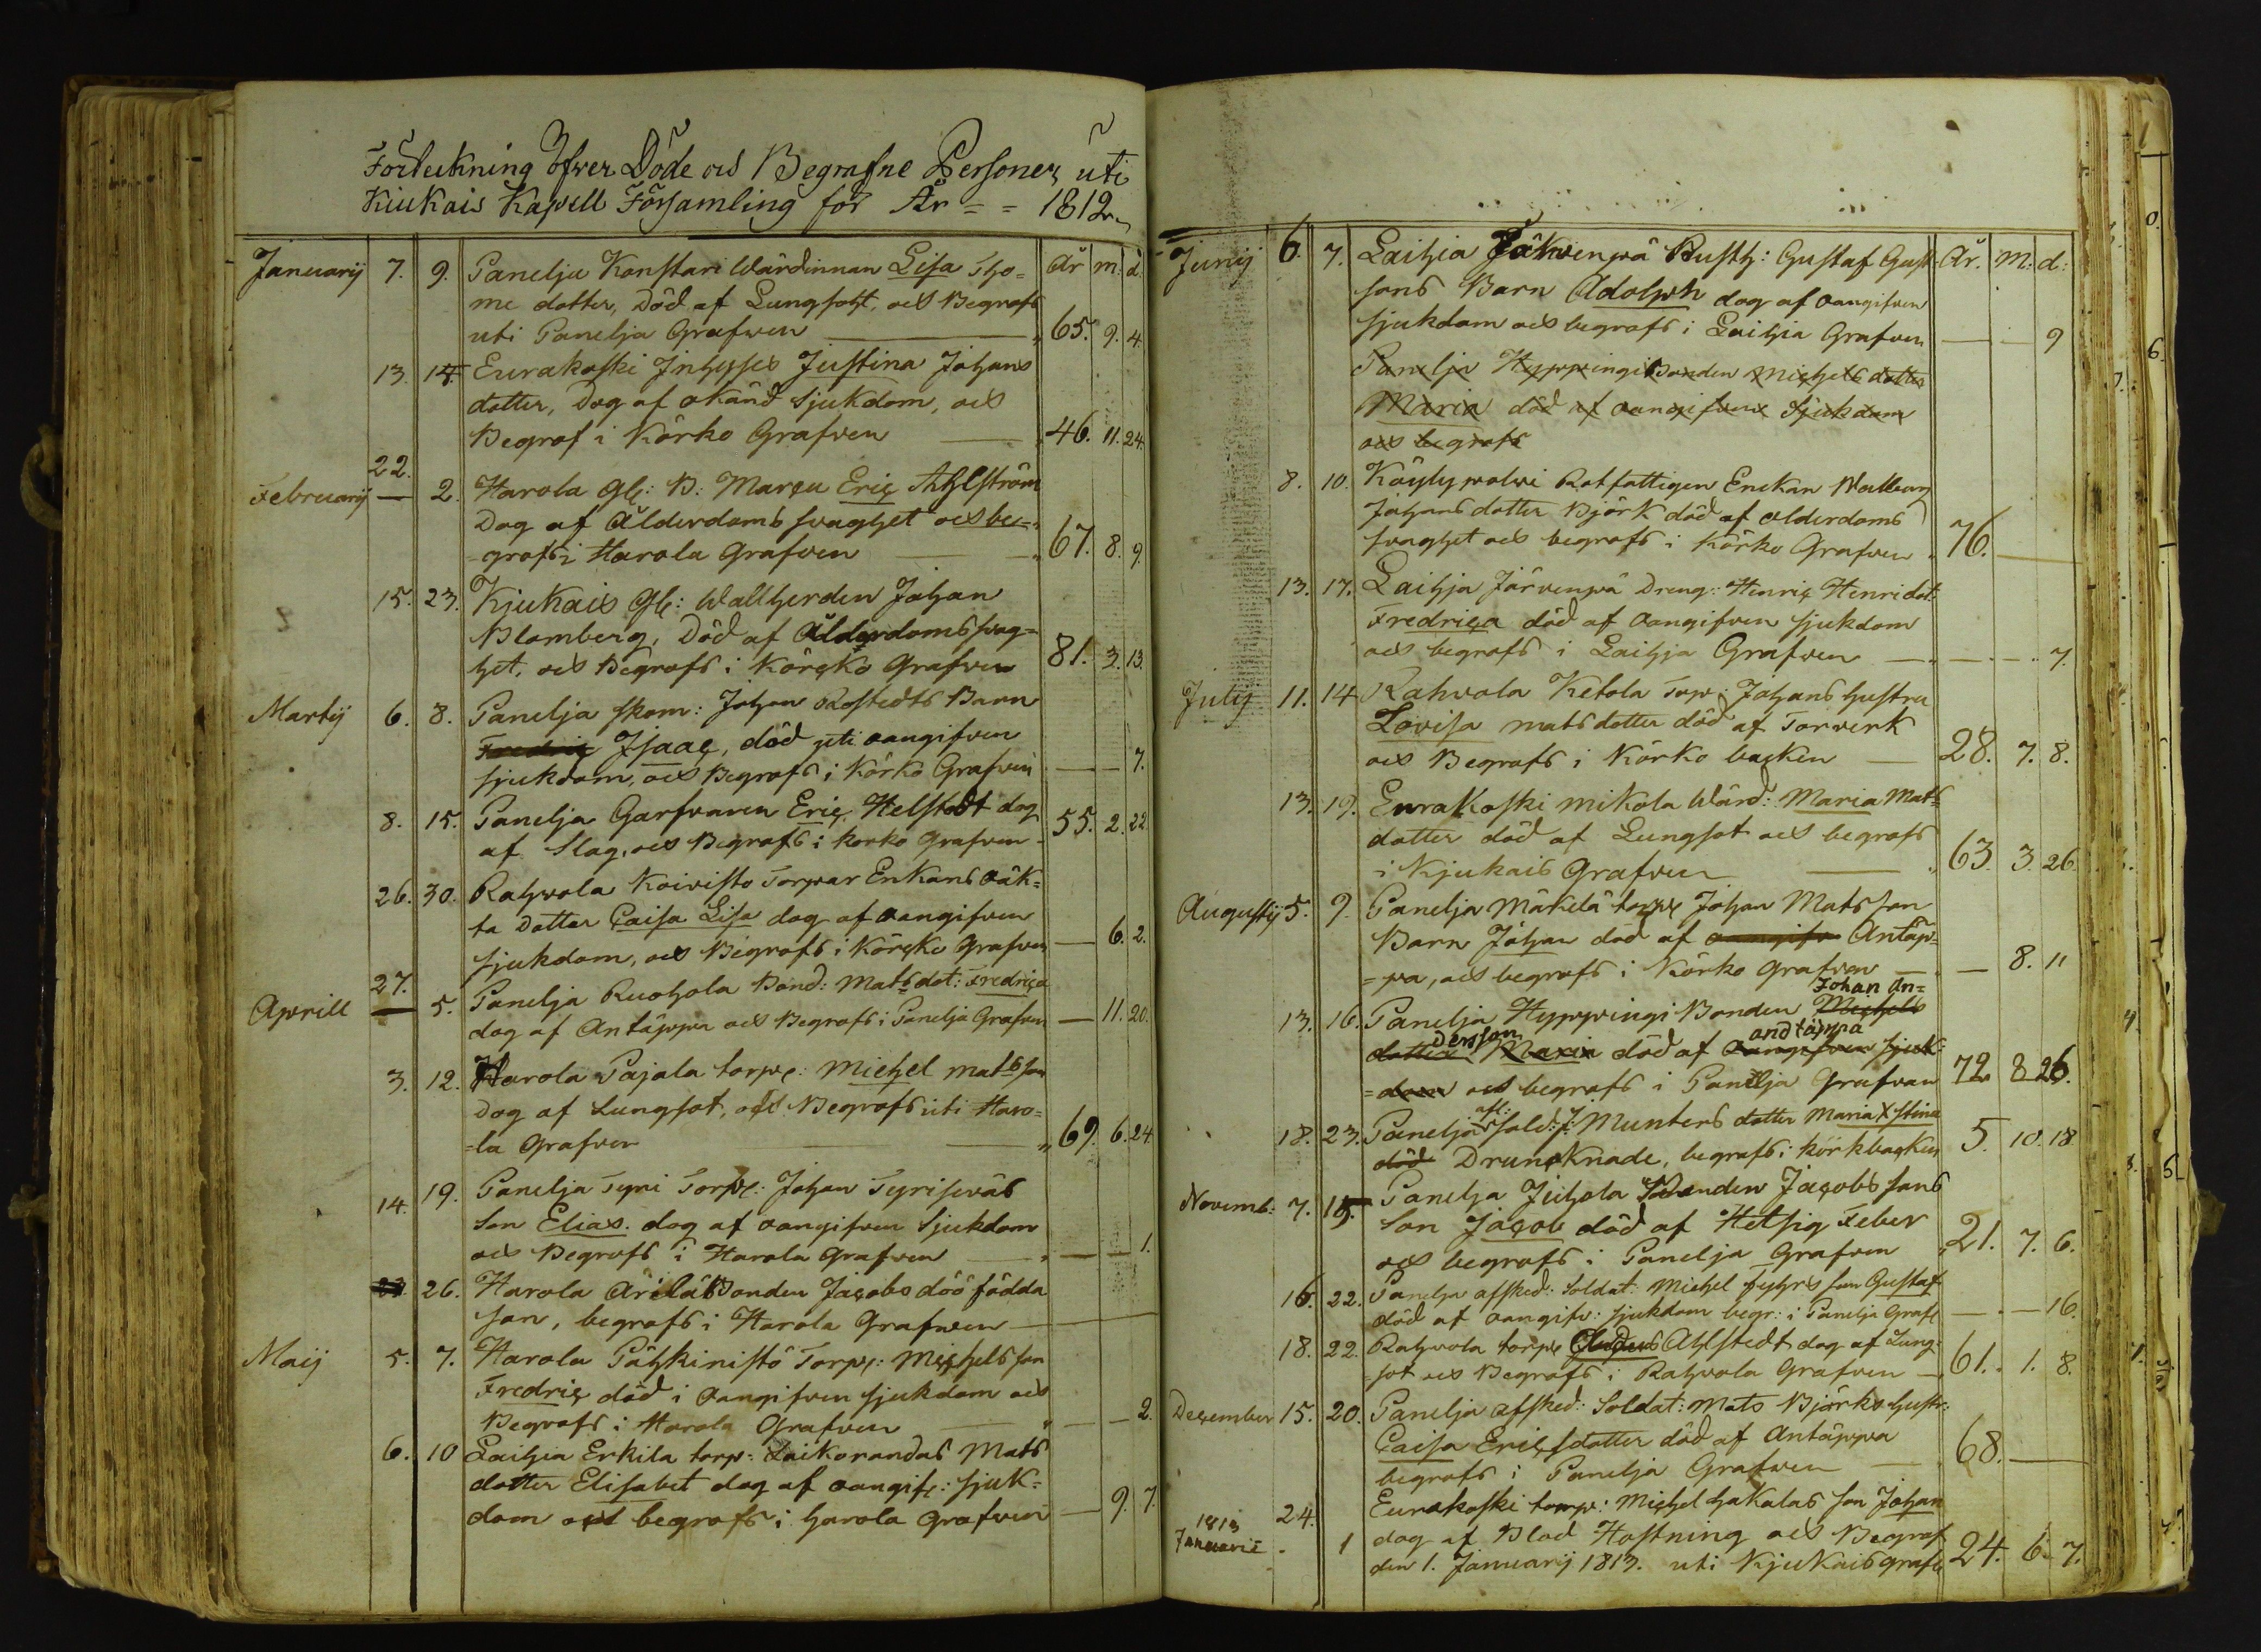 Förteckning Öfver Döde och Begrafne Personer uti
Kiukais Kapell Församling för År = = 1812
Januarij 7. 9. Panelja Konstari Wärdinnan Lisa Tho= År m. d.
me dotter, Död af Lungsoht, och Begrafs
uti Panelja Grafwen 65. 9. 4.
13. 14. Eurakoski Inhyses Justina Johans
dotter, Dog af okänd Sjukdom, och
Begraf i Körko Grafven 46. 11. 24.
22.
Februarij — 2. Harola Gl: B: Marcu Eric Ahlström
Dog af Ålderdoms svaghet och be=
=grafs i Harola Grafven 67. 8. 9.
15. 23. Kjukais Gl: Wallherden Johan
Blomberg, Död af Ålderdomssvag=
het, och Begrafs i Körcko Grafven 81. 3. 13.
Martij 6. 8. Panelja skom: Johan Rostedts Barn
Fredric Isaac, död uti oangifven
sjukdom, och Begrafs i Körko Grafven — — 7.
8. 15. Panelja Garfvaren Eric Helstedt dog
af Slag, och Begrafs i korko Grafven 55. 2. 22
26. 30. Rahvola Koivisto Torpar Enkans oäk=
ta Dotter Caisa Lisa dog af oangifven
sjukdom, och Begrafs i Körcko Grafven — 6. 2.
27.
Aprill — 5. Panelja Ruohola Bond: Mats dot: Fredrica
dog af Antäppa och Begrafs i Panelja Grafven — 11. 20.
3. 12. Harola Pajala torpr: Michel mats son
Dog af Lungsot, och Begrafs uti Haro=
=la Grafven 69. 6. 24
14. 19. Panelja Tyni Torpr: Johan
son Elias. dog af oangifven Sjukdom
och Begrafs i Harola Grafven — — 1.
23. 26. Harola Ärilä Bonden Jacobs dödfödda
son, begrafs i Harola Grafwen
Maij 5. 7. Harola Pätkinistö Torpr: Michels son
Fredric död i oangifven sjukdom och
Begrafs i Harola Grafven — — 2.
6. 10 Laihia Erkila torp: Mats
dotter Elisabet dog af oangif: sjuk=
dom och begrafs i harola Grafven — 9. 7.
Junij 6. 7. Laihia Rusth: Gustaf Gust År. m: d:
sons Barn Adolph dog af oangifven
sjukdom och begrafs i Laihia Grafven — — 9
Panelja Hyppingi Bonden Michels dotter
Maria död af oangifven Sjukdom
och begrafs
8. 10. Köylypolvi Rotfattigen Enckan Walborg
Johans dotter Björk död af olderdoms
svaghet och begrafs i Körko Grafven 76. —
13. 17. Laihja Järvenpä Dreng: Henric Henri dot:
Fredrica död af oangifven sjukdom
och begrafs i Laihja Grafven — — 7.
July 11. 14 Rahvola Ketola Torp: Johans hustru
Lovisa mats dotter död af Torverk
och Begrafs i Körko backen 28. 7. 8.
13. 19. Eurakoski mikola Wärd: Maria Mats
dotter död af Lungsot och begrafs
i Kjukais Grafven 63 3. 26.
Augustij 5. 9. Panelja Mäkelä torpr Johan Matsson
Barn Johan död af oangifv Antäp=
=pa, och begrafs i Körko Grafven — 8. 11
Johan An=
13. 16. Panelja Hyppingi Bonden Michels
dersson andtäppa
dotter Maria död af oangifven sjuk=
=dom och begrafs i Panelja Grafvan 72 8 26.
afs:
18. 23. Panelja sold: J: Munters dotter Maria Xstina
död Drunknade, begrafs i körkbacken 5. 10. 18
Novemb: 7. 15. Panelja Juhola Bonden Jacobs sons
Son Jacob död af Hetsig Feber
och begrafs i Panelja Grafven 21. 7. 6.
16. 22. Panelja afsked: Soldat: Michel fyhrs son Gustaf
död af oangifv: sjukdom begr: i Panelja Grafv — — 16.
18. 22. Rahvola torpr Anders Ahlstedt dog af Lung=
sot och Begrafs i Rahvola Grafven — 61. 1. 8.
December 15. 20. Panelja afsked: Soldat: Mats Björks hustr:
Caisa Ericsdotter död af Antäppa
begrafs i Panelja Grafwen 68. —
24. Eurakoski torpr: Michel hakalas son Johan
1813
Januarii . 1 dog af Blod Hostning och Begraf
den 1. Januarij 1813. uti Kjukais grafv 24. 6. 7.